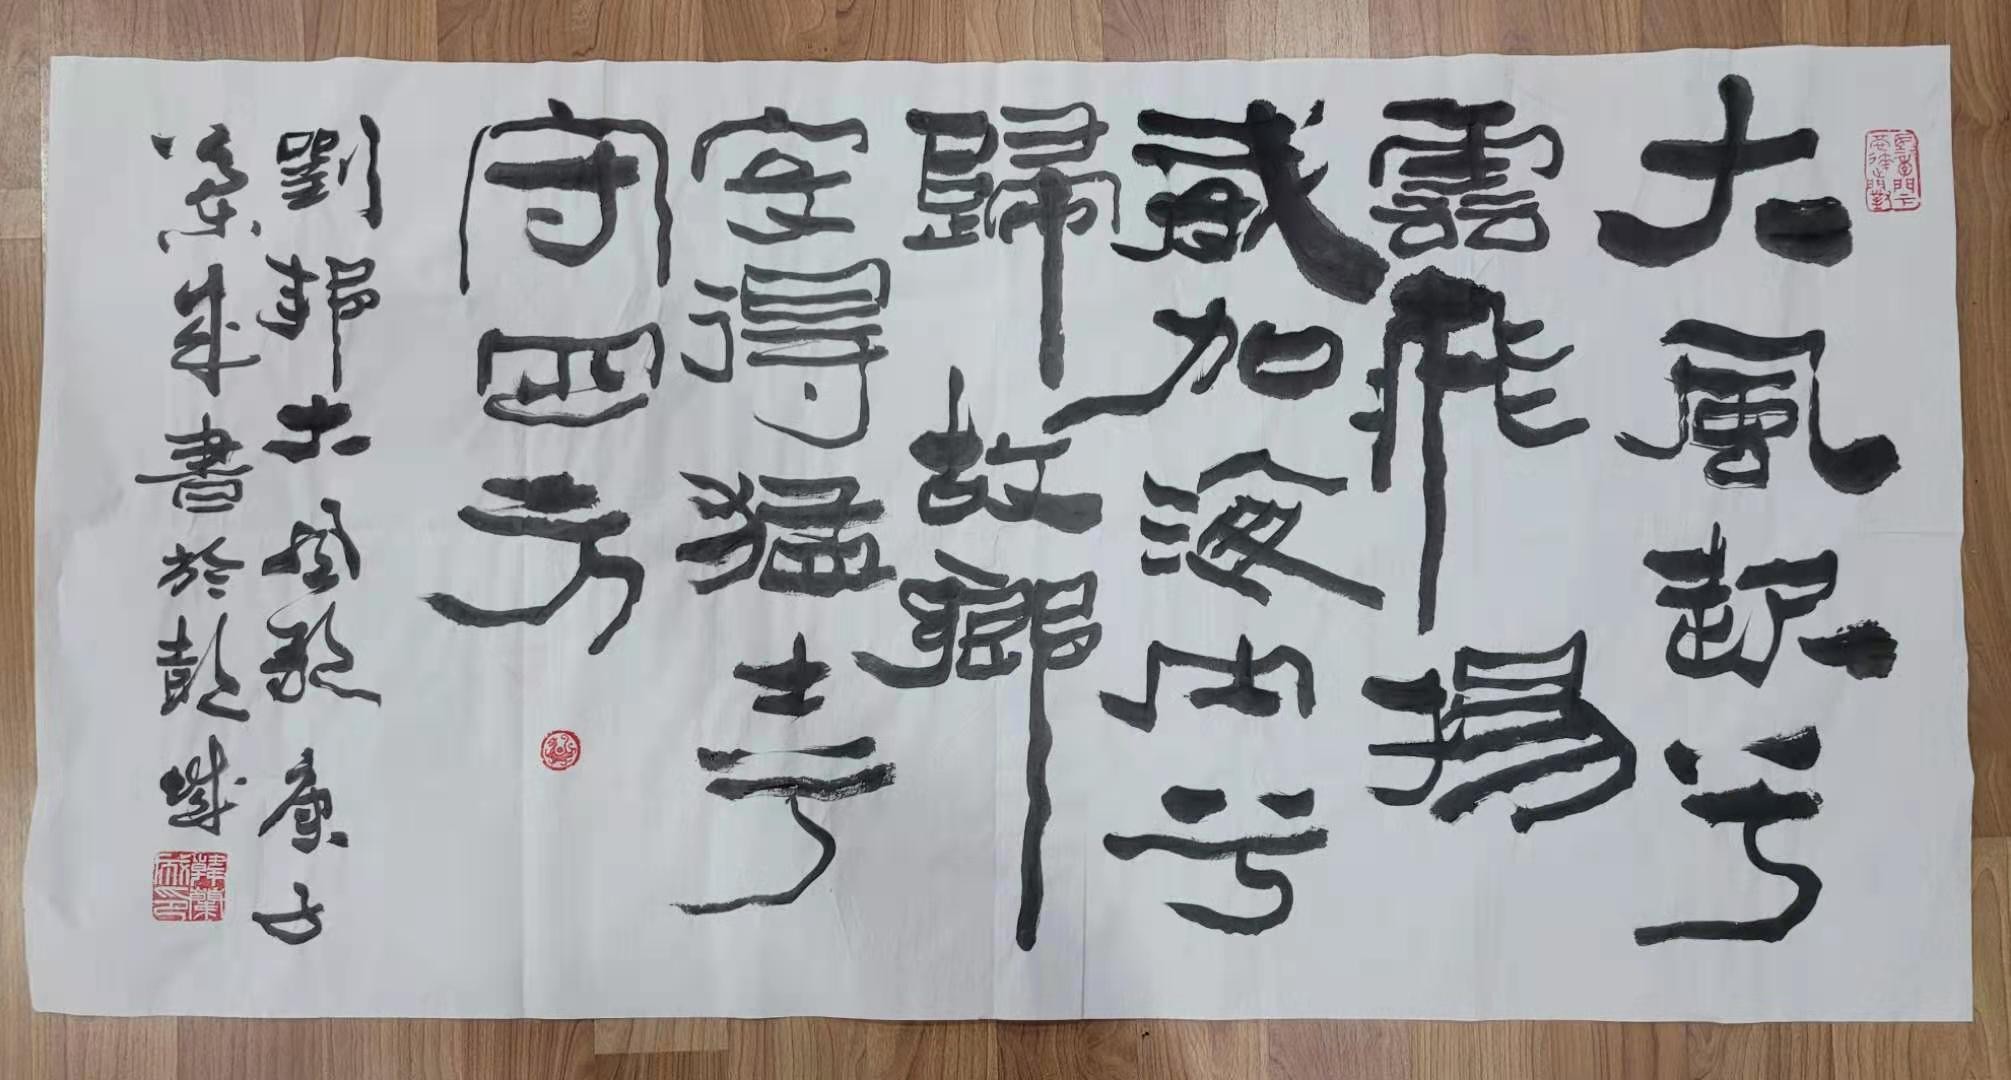 大風起兮
雲飛揚
威加海内兮
歸故鄉
安得猛士兮
守四方
劉邦大風歌庚子
成書於彭城